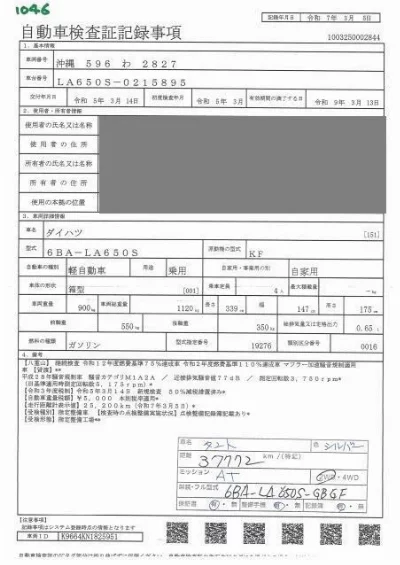 1046
記録年月日 令和 7年 3月 5日
自動車検査証記録事項
1003250002844
1. 基本情報
車両番号 沖縄 596 わ 2827
車台番号 LA650S-0215895
交付年月日 令和 5年 3月 14日 初度検査年月 令和 5年 3月 有効期間の満了する日 令和 9年 3月 13日
2. 使用者・所有者情報
使用者の氏名又は名称
使用者の住所
所有者の氏名又は名称
所有者の住所
使用の本拠の位置
3. 車両詳細情報
車名 ダイハツ [151]
型式 6BA-LA650S 原動機の型式 KF
自動車の種別 軽自動車 用途 乗用 自家用・事業用の別 自家用
車体の形状 箱型 [001] 乗車定員 4人 最大積載量 -kg
車両重量 900kg 車両総重量 1120kg 長さ 339cm 幅 147cm 高さ 175cm
前軸重 550kg 後軸重 350kg 総排気量又は定格出力 0.65
燃料の種類 ガソリン 型式指定番号 19276 類別区分番号 0016
4. 備考
【八重山】 継続検査 令和12年度燃費基準75%達成車 令和2年度燃費基準110%達成車 マフラー加速騒音規制適用
車 【諸費】**
平成28年騒音規制車 騒音カテゴリM1A2A / 近接排気騒音値 77dB / 測定回転数 3,750rpm**
【自動車重量税額】 ¥5,000 本則税率*
【走行距離計表示値】 25,200km (令和7年3月5日)*
【受検種別】 指定整備車 【検査時の点検整備実施状況】 点検整備記録簿記載あり*
【受検形態】 指定整備工場**
車名 タント 色 シルバー
距離 37772 km/(検記)
ミッション AT 2WD・4WD
認識・フル型式 6BA-LA650S-GBGF
保証書 有・無 整備手帳 有・無 記録簿 有・無
【注意事項】
本記録事項はシステム登録時点の情報となります
車両ID K9664KN1825951